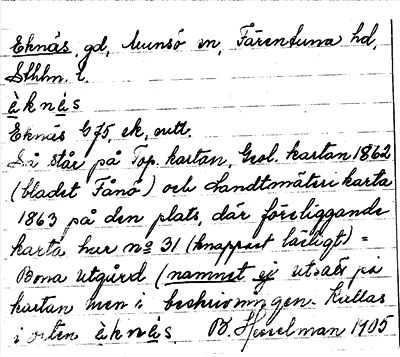 Eknäs, gd, Munsö sn, Färentuna hd,
Sthlm. l.
èknä̀s
Eknäs Gf5, ek, utt.
Så står på Top. kartan, Geol. kartan 1862
(bladet Fånö) och Landtmäteri karta
1863 på den plats, där föreliggande
karta har nº 31 (knappast läsligt) =
Bona utgård (namnet ej utsatt på
kartan men i beskrivningen. Kallas
i orten èknä̀s. B. Hesselman 1905